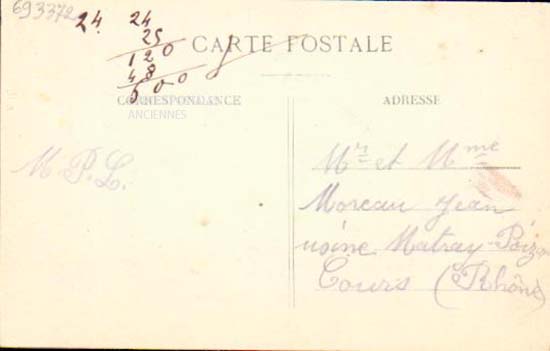 693372
24. 24
25
120
48
600
CARTE POSTALE
CORRESPONDANCE
ANCIENNES
ADRESSE
M. P. L.
Mr et Mme
Moreau Jean
usine Matray-Poizat
Cours (Rhône)